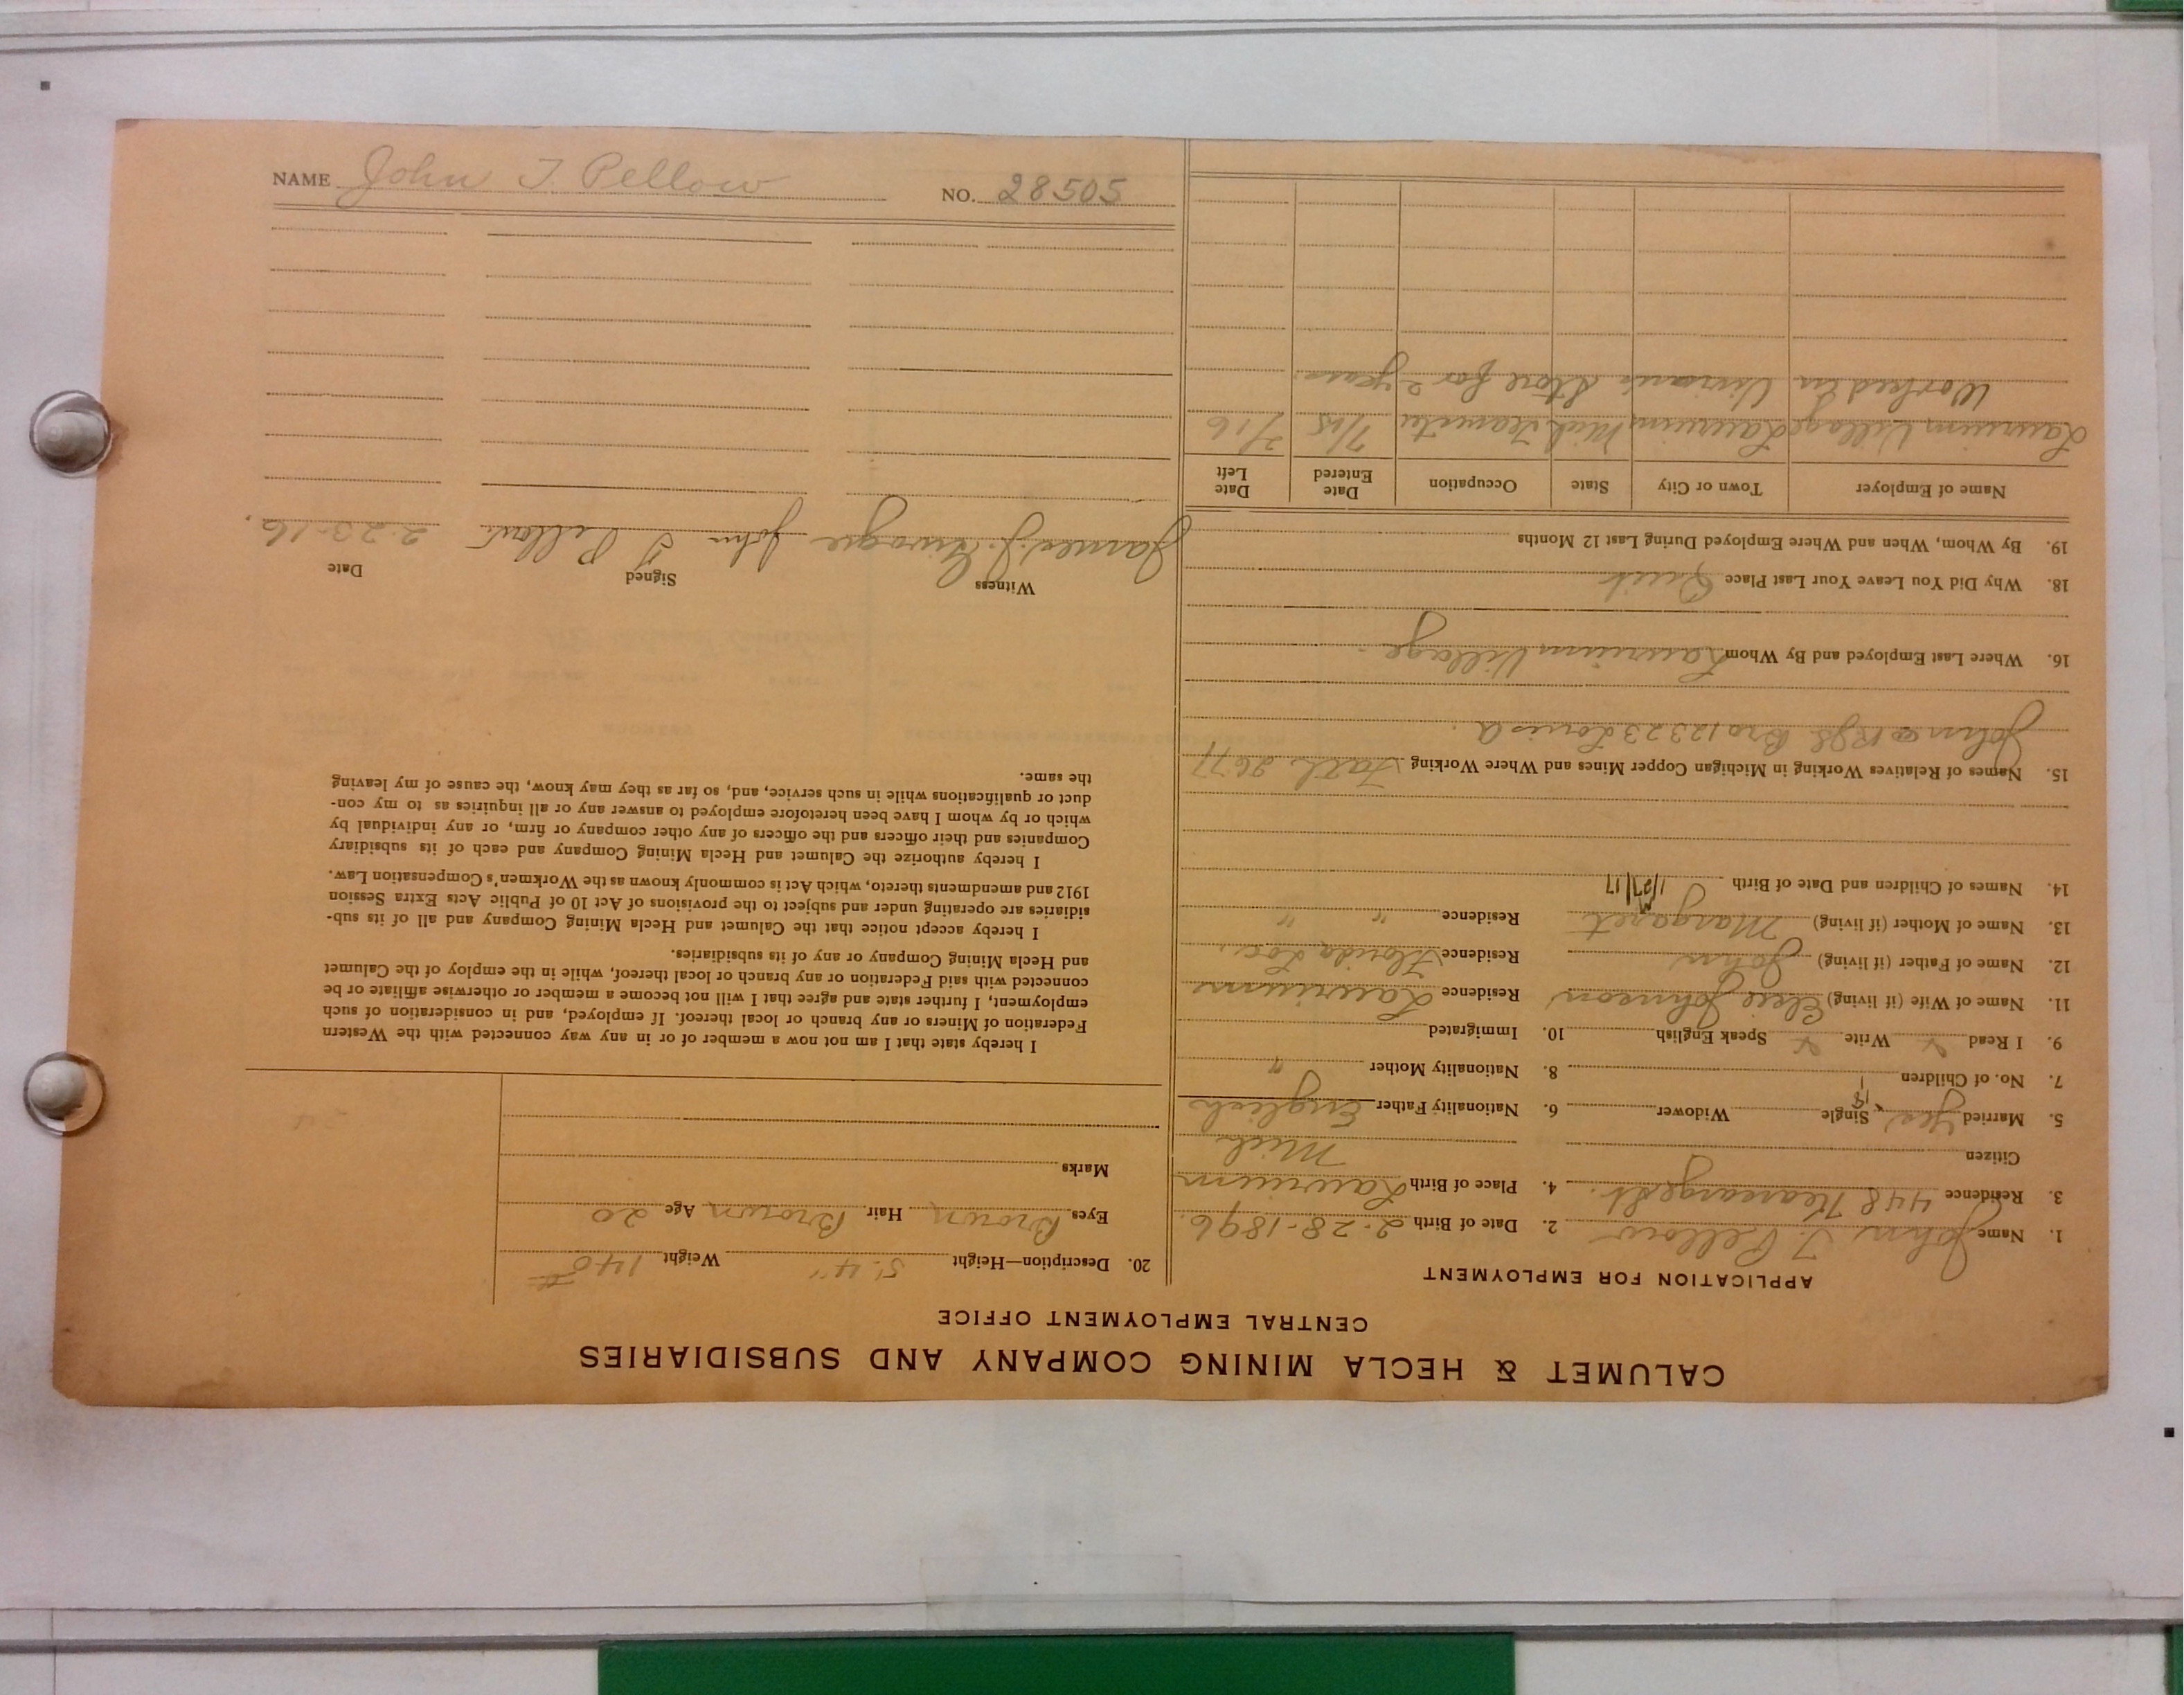 CALUMET & HECLA MINING COMPANY AND SUBSIDIARIES
CENTRAL EMPLOYMENT OFFICE
APPLICATION FOR EMPLOYMENT
1. Name John T. Pellow 2. Date of Birth 2-28-1896.
3. Residence 448 Kearsarge St. 4. Place of Birth Laurium
Citizen Mich
5. Married Yes Single Widower 6. Nationality Father English
18
7. No. of Children 1 8. Nationality Mother "
9. I Read ✓ Write ✓ Speak English 10. Immigrated
11. Name of Wife (if living) Elsie Johnson Residence Laurium
12. Name of Father (if living) John Residence Florida Loc.
13. Name of Mother (if living) Margaret Residence " "
14. Names of Children and Date of Birth M 1/27/17
15. Names of Relatives Working in Michigan Copper Mines and Where Working Fath 2677
John RJS Bro 12323 Louis A.
16. Where Last Employed and By Whom Laurium Village.
18. Why Did You Leave Your Last Place Quit
19. By Whom, When and Where Employed During Last 12 Months
Name of Employer Town or City State Occupation Date Entered Date Left
Laurium Village Laurium Mich Teamster 7/15 2/16
Worked in Store for 2 years.
20. Description—Height 5'.4" Weight 140#
Eyes Brown Hair Brown Age 20
Marks
I hereby state that I am not now a member of or in any way connected with the Western
Federation of Miners or any branch or local thereof. If employed, and in consideration of such
employment, I further state and agree that I will not become a member or otherwise affiliate or be
connected with said Federation or any branch or local thereof, while in the employ of the Calumet
and Hecla Mining Company or any of its subsidiaries.
I hereby accept notice that the Calumet and Hecla Mining Company and all of its sub-
sidiaries are operating under and subject to the provisions of Act 10 of Public Acts Extra Session
1912 and amendments thereto, which Act is commonly known as the Workmen's Compensation Law.
I hereby authorize the Calumet and Hecla Mining Company and each of its subsidiary
Companies and their officers and the officers of any other company or firm, or any individual by
which or by whom I have been heretofore employed to answer any or all inquiries as to my con-
duct or qualifications while in such service, and, so far as they may know, the cause of my leaving
the same.
Witness Signed Date
James J. John T Pellow 2-23-16.
NAME John T. Pellow NO. 28505